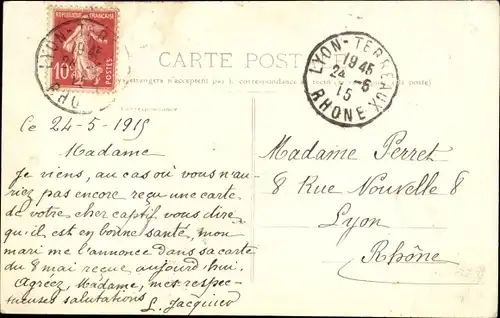 REPUBLIQUE FRANÇAISE
10c POSTES
LYON-TERREAUX
1945
24 -5
15
RHONE
CARTE POST
étrangers n'acceptent pas
Correspondance
Ce 24-5-1915
Madame
Je viens, au cas où vous n'au-
riez pas encore reçu une carte
de votre cher captif vous dire
qu'il est en bonne santé, mon
mari me l'annonce dans sa carte
du 8 mai reçue aujourd'hui.
Agréez, Madame, mes respec-
tueuses salutations
Madame Perret
8 Rue Nouvelle 8
Lyon
Rhône